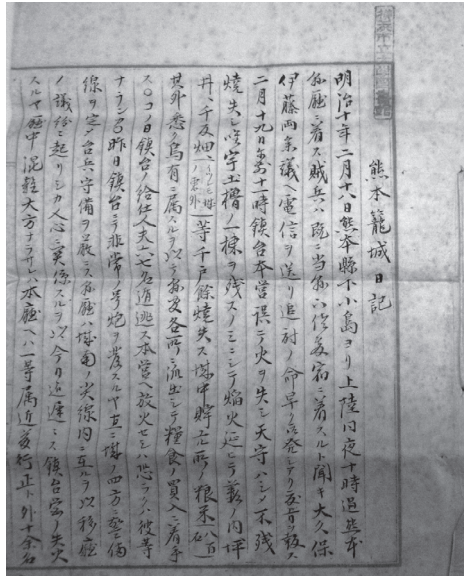 熊本籠城日記
明治十年二月十八日熊本縣下小島ヨリ上陸同夜十時過熊本
縣廳ニ着ス賊兵ハ既ニ當縣下佐敷宿ニ着スルト聞キ大久保
伊藤両参議ヘ電信ヲ送リ追討ノ命早ク発シアリ度旨ヲ報ス
二月十九日午前十一時鎮台本営誤テ火ヲ失シ天守ハシメ不残
焼失シ唯宇土櫓ノ一棟ヲ残スノミニシテ焔火延ヒテ藪ノ内坪
井千反畑等千戸餘焼失ス城中貯フル所ノ粮米
其外悉ク烏有ニ属スルヲ以テ縣吏各所ニ派出シテ糧食ノ買入ニ着手
スコノ日鎮台ノ給仕人夫七名逃逃ス本営ヘ放火セシハ恐ラクハ彼等
ナランカ昨日鎮台ニテ非常ノ号炮ヲ発スルヤ直ニ城ノ四方ニ
線ヲ定メ台兵守備ヲ厳ニス縣廳ハ城南ノ尖線内ニ在ルヲ以移廳
ノ議紛ニ起リシカ人心ニ関係スルヲ以今日迄遅ニス鎮台営ノ失火
スルヤ城中混雑大方ナラサレハ本廳ヘハ一等属近藤行正ト外十余名